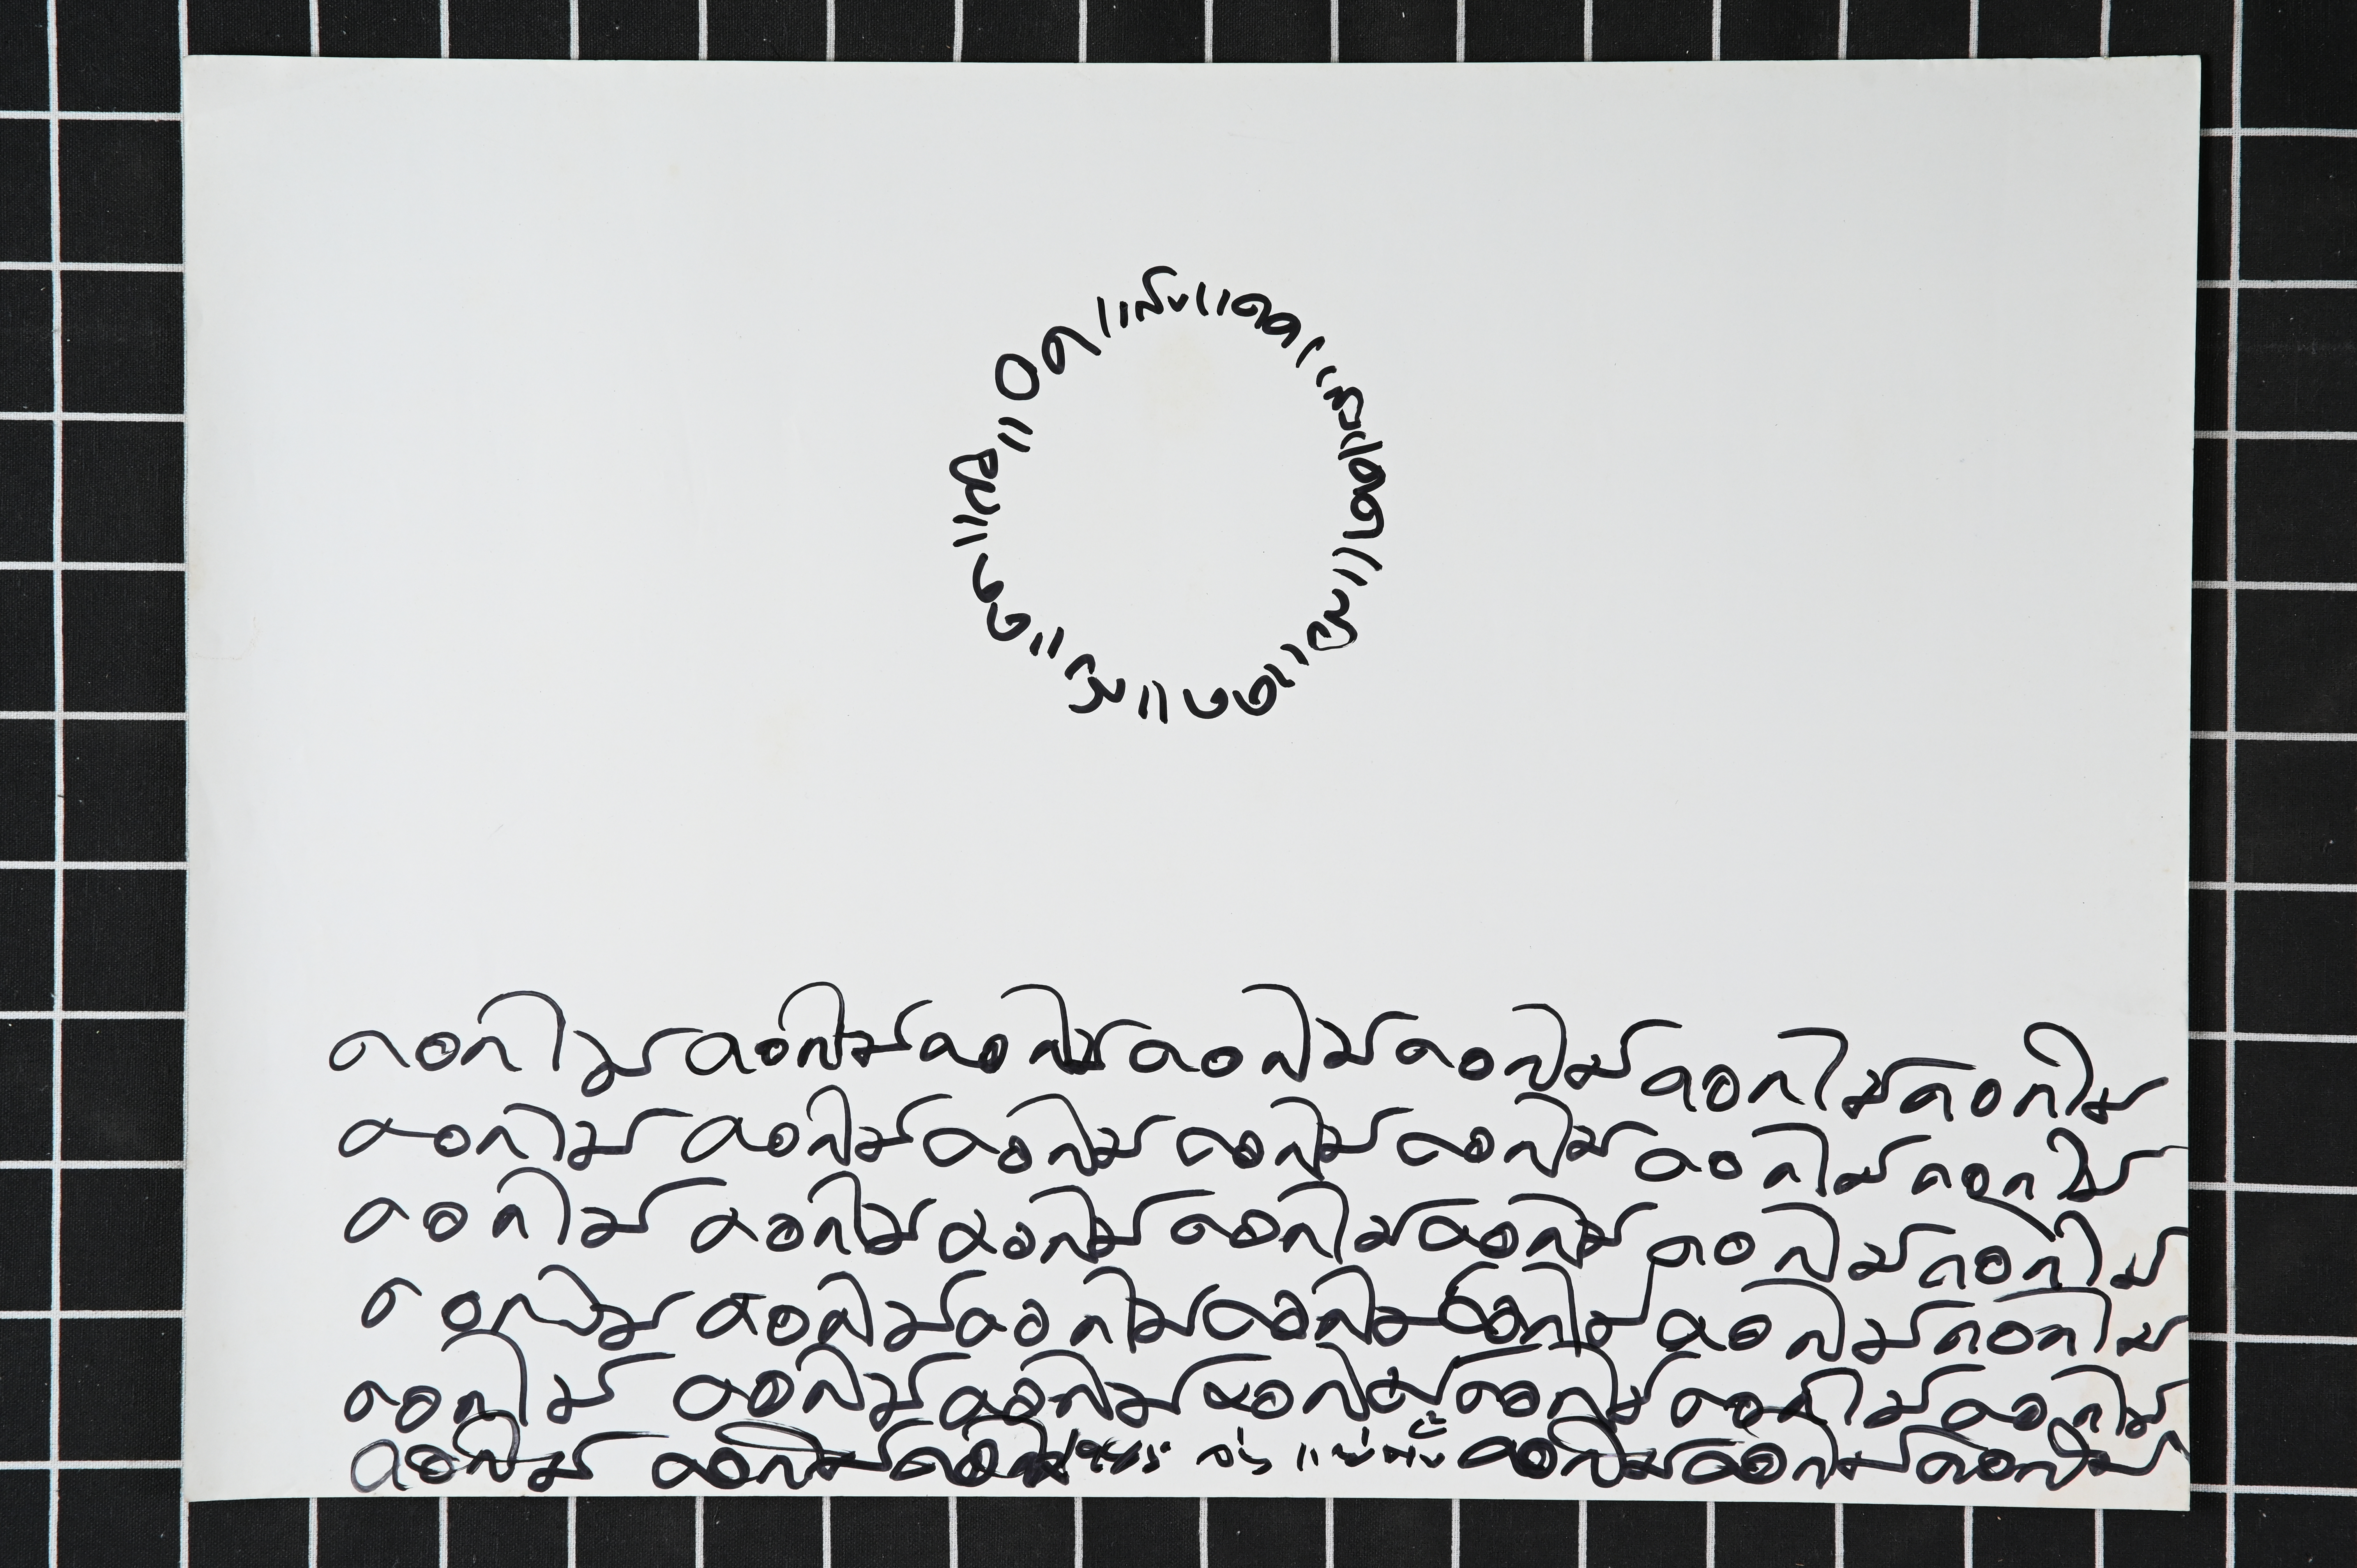 แสงแดดแสงแดดแสงแดดแสงแดดแสงแดด
ดอกไม้ ดอกไม้ดอกไม้ดอกไม้ดอกไม้ดอกไม้ดอกไม้
ดอกไม้ ดอกไม้ดอกไม้ ดอกไม้ดอกไม้ดอกไม้ดอกไม้
ดอกไม้ ดอกไม้ดอกไม้ดอกไม้ดอกไม้ดอกไม้ดอกไม้
ดอกไม้ ดอกไม้ดอกไม้ดอกไม้ดอกไม้ดอกไม้ดอกไม้
ดอกไม้ ดอกไม้ดอกไม้ดอกไม้ดอกไม้ดอกไม้ดอกไม้
ดอกไม้ ดอกไม้ดอกไม้ ดอกไม้ดอกไม้ดอกไม้